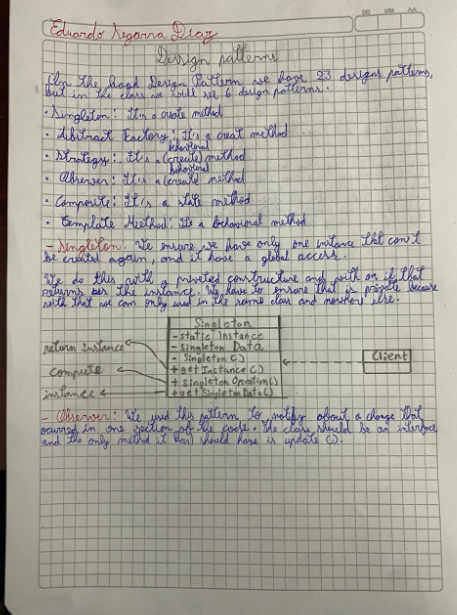 DD MM AA
Eduardo Segarra Diaz
Dessign patterns
On the book Design Pattern we have 23 designs patterns,
but in the class we will se 6 design patterns.
· Singleton: It's a create method
· Abstract Factory: It's a creat method
behavioral
· Strategy: It's a (create) method
behavioral
· Observer: It's a (create) method
· Composite: It's a state method
· Template Method: Its a behavioral method
- Singleton: We ensure we have only one instance that can't
be created again, and it have a global access.
We do this with a privated constructure and with an if that
returns us the instance. We have to ensure that is private because
with that we can only used in the same class and nowhere else.
Singleton
- static instance
- Singleton Data
return instance
- Singleton ()
Client
compute
+ get Instance ()
+ Singleton Operation ()
instance
+ get Singleton Data ()
- Observer: We used this pattern to notify about a change that
ocurred in one section of the code. The class should be an interface
and the only method it should have is update ().